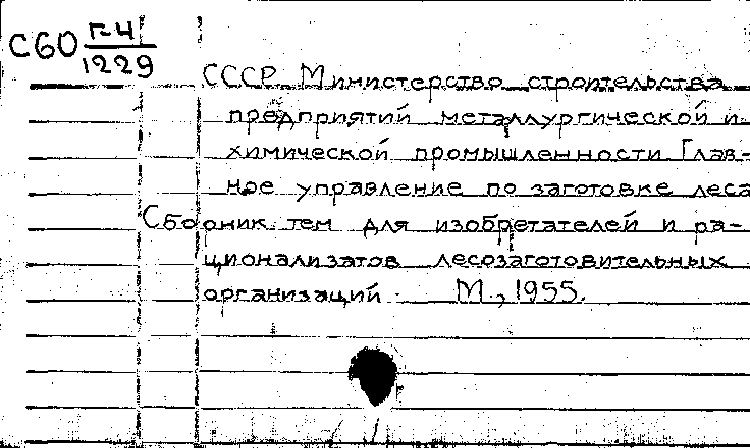 С60 Г-4
1229
СССР Министерство строительства
предприятий металлургической и
химической промышленности. Глав-
ное управление по заготовке леса
Сборник тем для изобретателей и ра-
ционализатов лесозаготовительных
организаций. М., 1955.